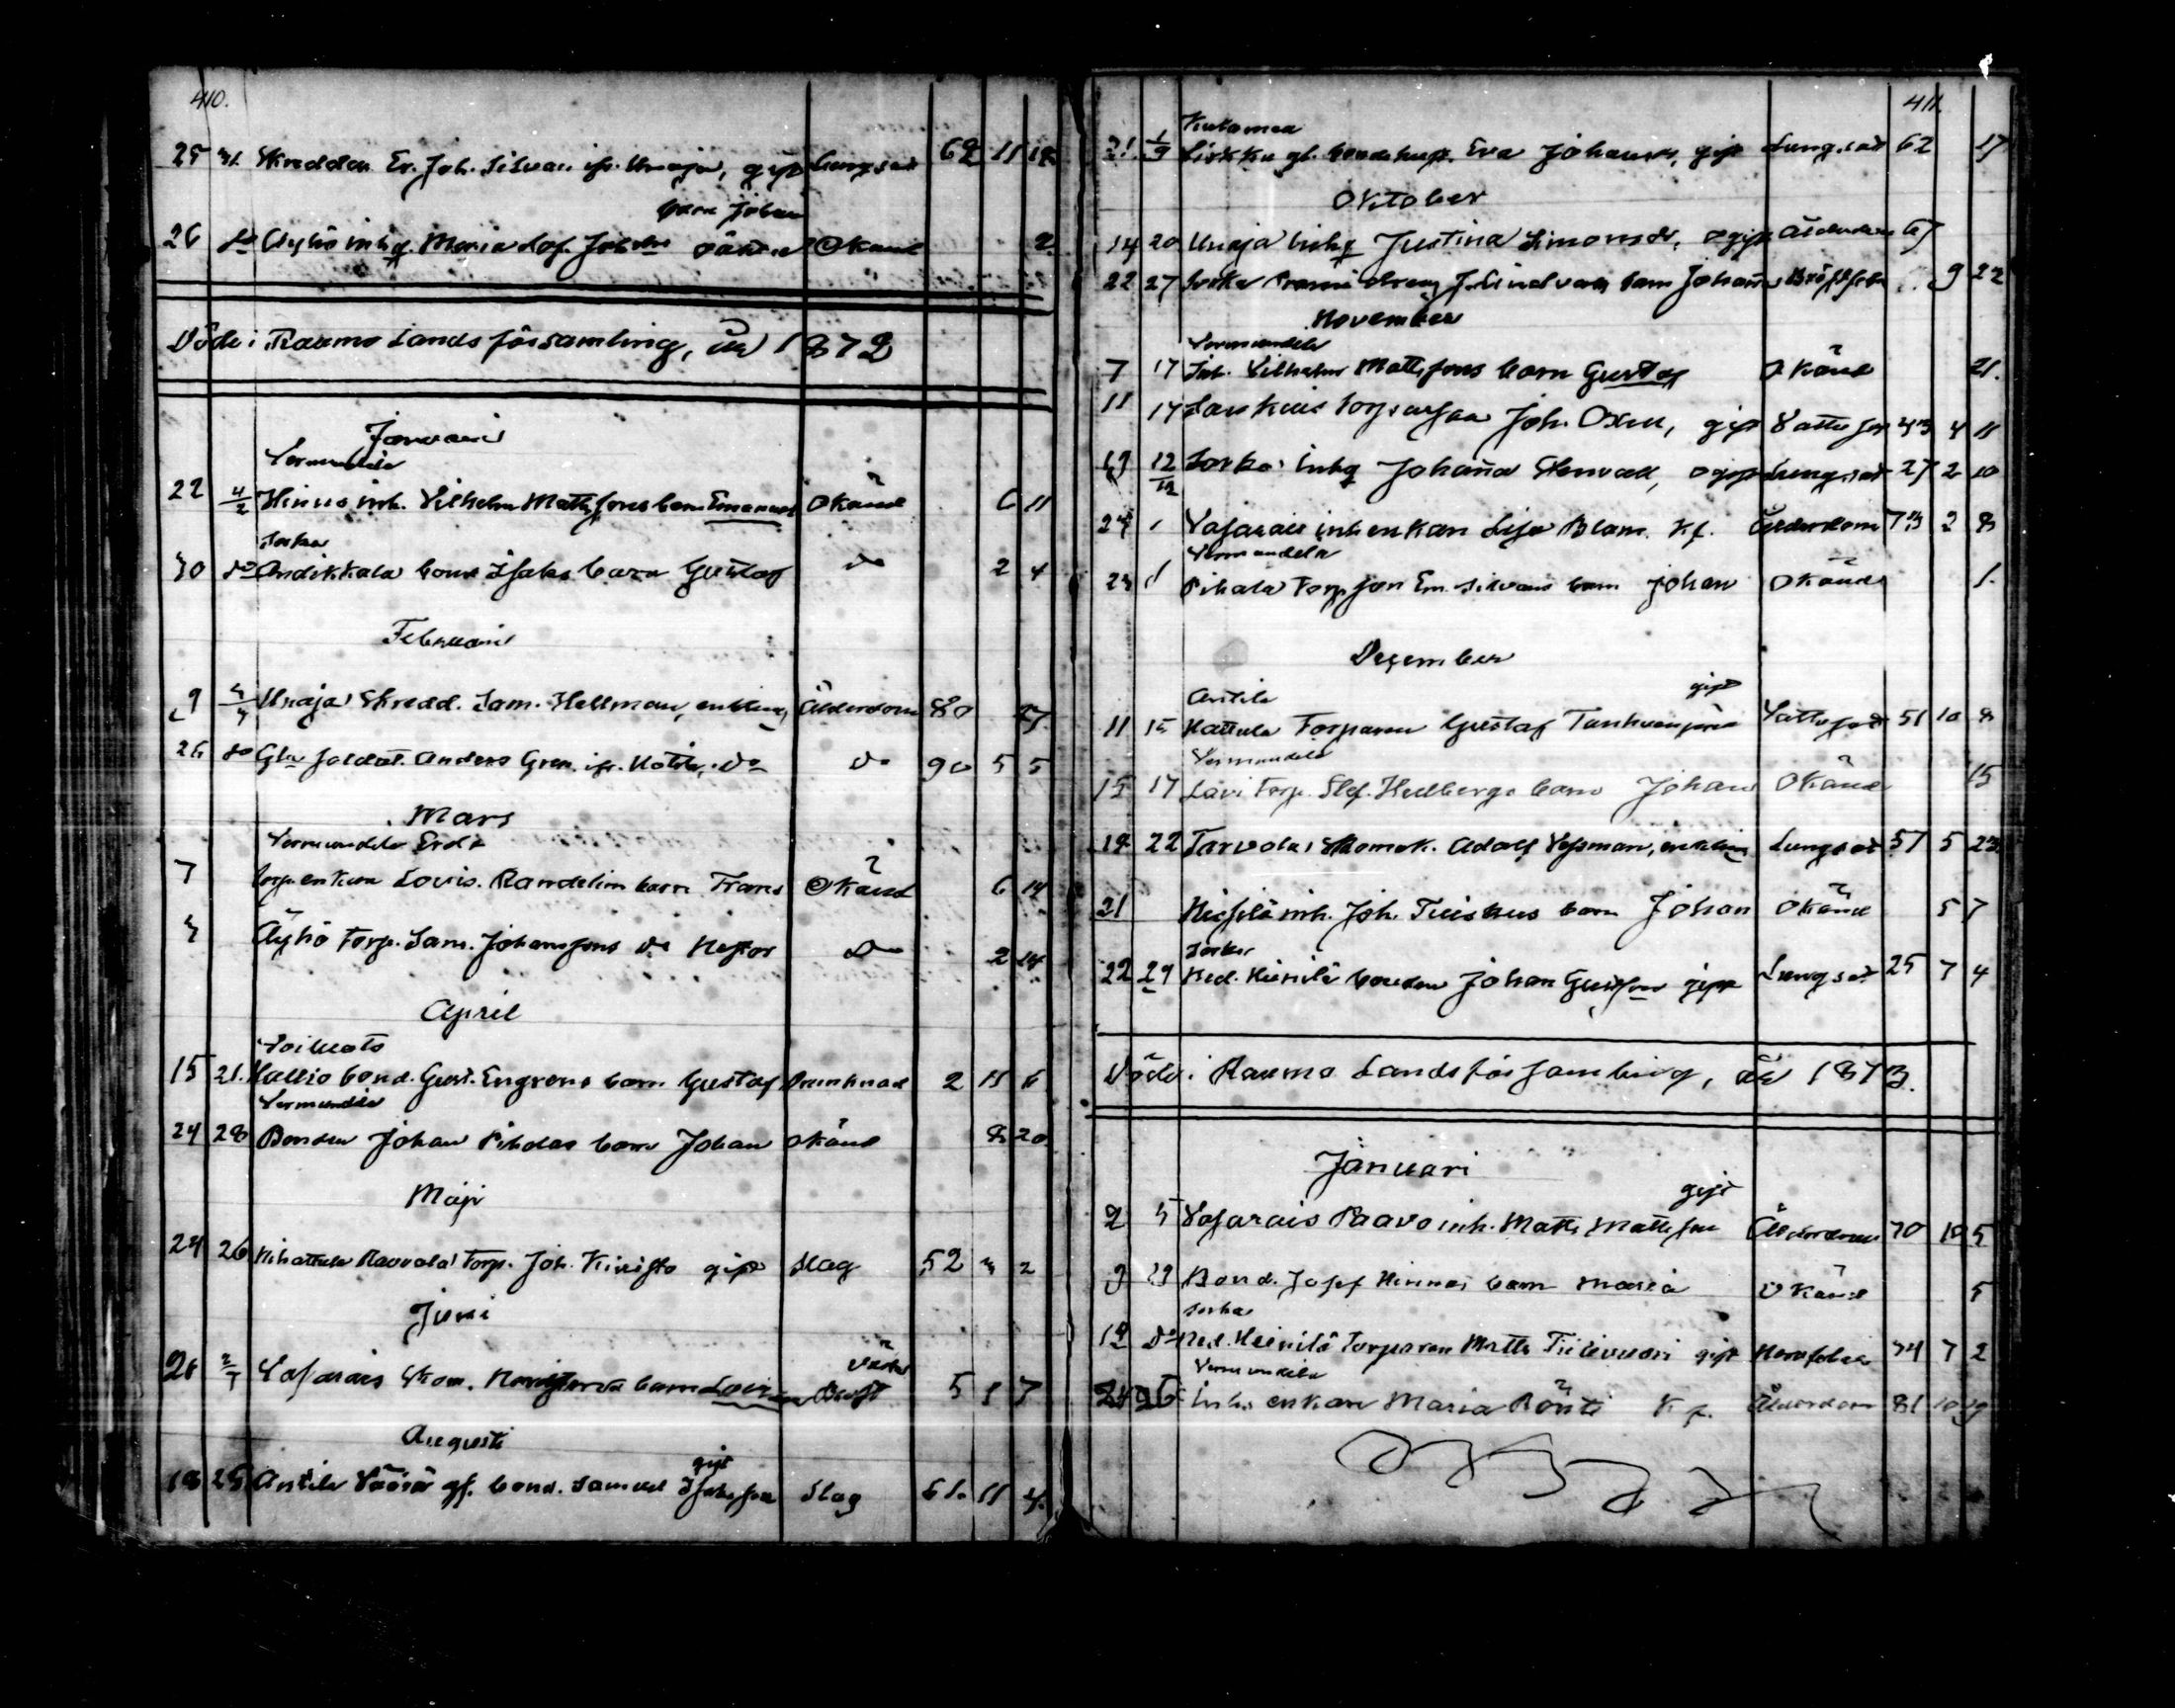 410.
25 31. Skreddar. Er. Joh. Silvan ifr. Unaja, gift Lungsot 62 11 18
barn Johan
26 do Äyhö inhq. Maria Sof. Johsdr oäkta Okänd 2.
Döde i Raumo Landsförsamling, år 1872
Januari
Vermundila
22 4/2 Hinno inh. Vilhelm Mattssons barn Emanuel Okänd 6 11
Sorka
30 do Andikkala bond Isaks barn Gustaf do 2 4
Februari
9 3/3 Unaja Skredd. Sam. Hellman, enkling Ålderdom 80 27.
26 do Gla soldat. Anders Gren. ifr. Kotila, do do 90 5 5
Mars
Vermundila Erds
7 torp.enkan Lovis. Randelin barn Frans Okänd 6 14
Äyhö Torp. Sam. Johanssons do Nestor do 2 14
April
Voiluoto
15 21. Kallio bond. Gust. Engrens barn Gustaf Drunknad 2 11 6
Vermundila
24 28 Bonden Johan Pihdas barn Johan okänd 8 20
Maji
24 26 Torp. Joh. gift Slag 52 3 2
Juni
26 Vasarais Skom. barn Lovisa Bröst 5 1 7
Augusti
gift
18 25 Antila Vääsä gf. bond. Samuel Isaksson Slag 61. 11 4.
411.
Kulamaa
21 1/9 Lirkku gl. bondehust. Eva Johansdr, gift Lungsot 62 17
Oktober
14 20 Unaja inhq Justina Simonsdr, ogift Ålderdom 67
22 27 Sorka dreng J. Lindvalls barn Johanna Bröstfeber 9 22
November
Vermundila
7 17 Inh. Vilhelm Mattssons barn Gustaf Okänd 21.
11 17 Joh. Oxell, gift 43 4 11
12/12 Sorka inhq Johanna Stenvall, ogift Lungsot 27 2 10
24 1 Vasarais inh enkan Lisa Blom. Kf. Ålderdom 73 2 8
Vermundila
23 1 Pihala Torp.son Em. Silvans barn Johan Okänd 1.
December
Antila gift
11 15 Kattula Torparen Gustaf Vattusot 51 10 8
Vermundila
15 17 Lavi Torp. Stef. Hellbergs barn Johan Okänd 15
19 22 Tarvola Skomak. Adolf Vessman, enkling Lungsot 57 5 23
21 inh. Joh. Tuiskus barn Johan Okänd 5 7
Sorka
22 29 Ned. Heinilä bonden Johan Gustsson gift Lungsot 25 7 4
Döde i Raumo Landsförsamling, år 1873.
Januari
gift
2 5 Vasarais Paavo inh. Matts Mattsson Ålderdom 70 10 5
9 19 Bond. Josef Hinnas barn Maria Okänd 5
Sorka
12 do Ned. Heinilä torparen Matts Tiilivuori gift Nervfeber 74 7 2
Vermundila
24 26 Inh. enkan Maria Rönti Kf. Ålderdom 81 10 19